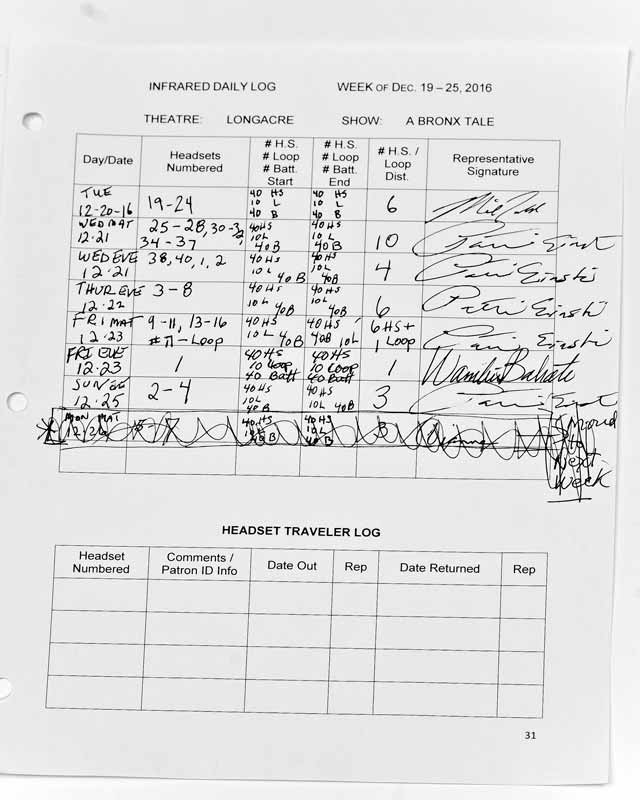 INFRARED DAILY LOG WEEK OF DEC. 19 – 25, 2016
THEATRE: LONGACRE SHOW: A BRONX TALE
Day/Date Headsets Numbered # H.S. # Loop # Batt. Start # H.S. # Loop # Batt. End # H.S. / Loop Dist. Representative Signature
TUE 12-20-16 19-24 40 HS 10 L 40 B 40 HS 10 L 40 B 6
WED MAT 12.21 25-28, 30-32 34-37 40HS 10L 40B 40HS 10L 40B 10
WED EVE 12.21 38, 40, 1, 2 40HS 10L 40B 40HS 10L 40B 4
THUR EVE 12.22 3-8 40HS 10L 40B 40HS 10L 40B 6
FRI MAT 12.23 9-11, 13-16 40HS 10L 40B 40HS 40B 10L 6HS+ 1 Loop
FRI EVE 12.23 1 40HS 10 Loop 40 Batt 40HS 10 Loop 40 Batt 1
SUN EVE 12.25 2-4 40HS 10L 40B 40HS 10L 40B 3
MON MAT 5-7 40HS 10L 40B 40HS 10L 40B 3 to Next Week
HEADSET TRAVELER LOG
Headset Numbered Comments / Patron ID Info Date Out Rep Date Returned Rep
31